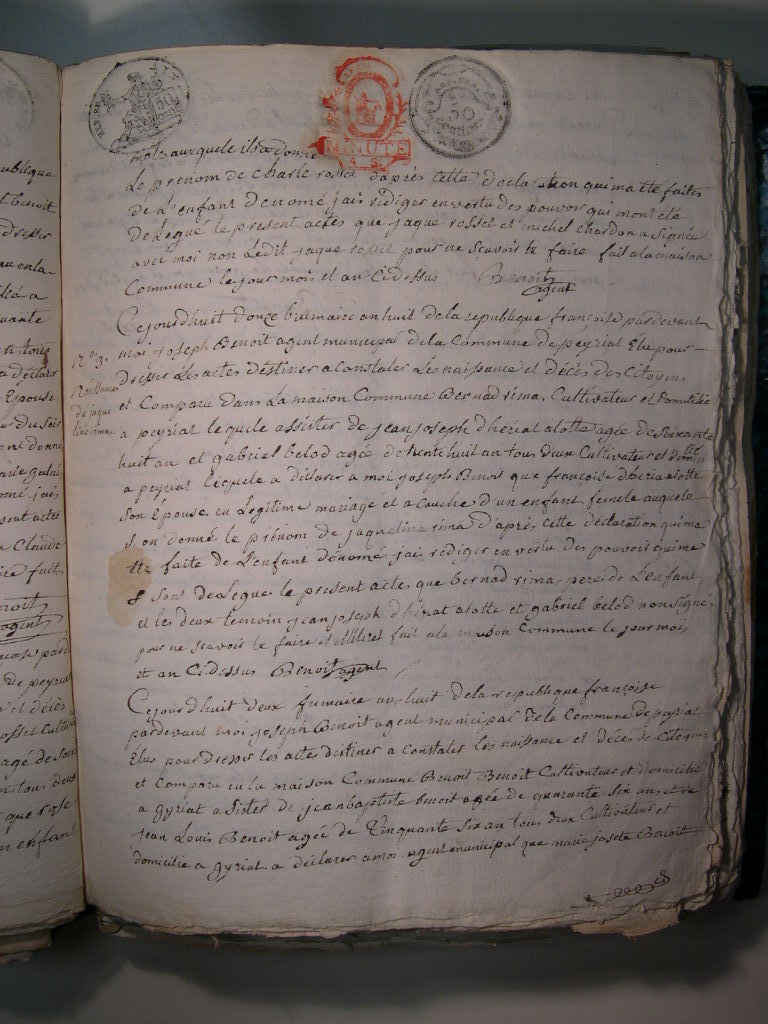 AIN
50
MINUTE
50
centimes
mol auxquele ils a donné
Le prenom de charle rosset d'après cette déclaration qui ma été faites
de L'enfant denomé jais rédiger en vertu des pouvoir qui mont été
délegué le present actes que jaque rosset et michel chardon a signée
avec moi non Ledit jaque rosset pour ne scavoir te faire fait a la maison
Commune le jour mois et an Cidessus Benoit
agent
Cejourdhuit douze brumaire an huit de la republique françoise pardevant
moi joseph Benoit agent municipal de la Commune de peyriat Elu pour
dresser Les actes destiner a Constater Les naissance et décès des Citoyens
et Comparu dans La maison Commune Bernad rima. Cultivateur et domicilié
a peyriat lequele assister de jean joseph dheriat alotte agée de soixante
huit an et gabriel belod agée de trente huit an tous deux Cultivateur et domicilié
a peyriat lequele a déclarer a moi joseph Benoit que françoise dheria alotte
son Epouse en Legitime mariage et a couche d'un enfant femele auquele
on donné le prénom de jaqueline rima d'après cette déclaration qui ma
été faite de L'enfant dénomé jai rédiger en vertu des pouvoir qui me
sont delegue le present acte que bernad rima pere de L'enfant
et les deux temoin jean joseph dheriat alotte et gabriel belod non signé
pour ne scavoir te faire et illitret fait a la maison Commune le jour mois
et an Cidessus Benoit agent
n° 3.
Naissance
de jaque
line rima.
Cejourdhuit deux frimaire an huit de la republique françoise
pardevant moi joseph Benoit agent municipal de la Commune de peyriat
Elus pour dresser les actes destiner a Constater les naissance et décès de Citoyens
et Comparu en la maison Commune Benoit Benoit Cultivateur et domicilié
a gyriat assister de jean baptiste benoit agée de quarante six an et de
jean Louis Benoit agée de Cinquante six an tous deux Cultivateur et
domicilié a gyriat a déclarer a moi agent municipal que marie josete Benoit